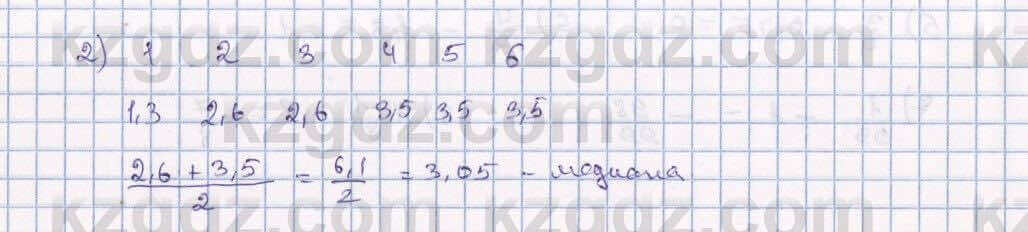 kzgdz.com
2) 1 2 3 4 5 6
1,3 2,6 2,6 3,5 3,5 3,5
(2,6 + 3,5)/2 = 6,1/2 = 3,05 - медиана
kzgdz.com